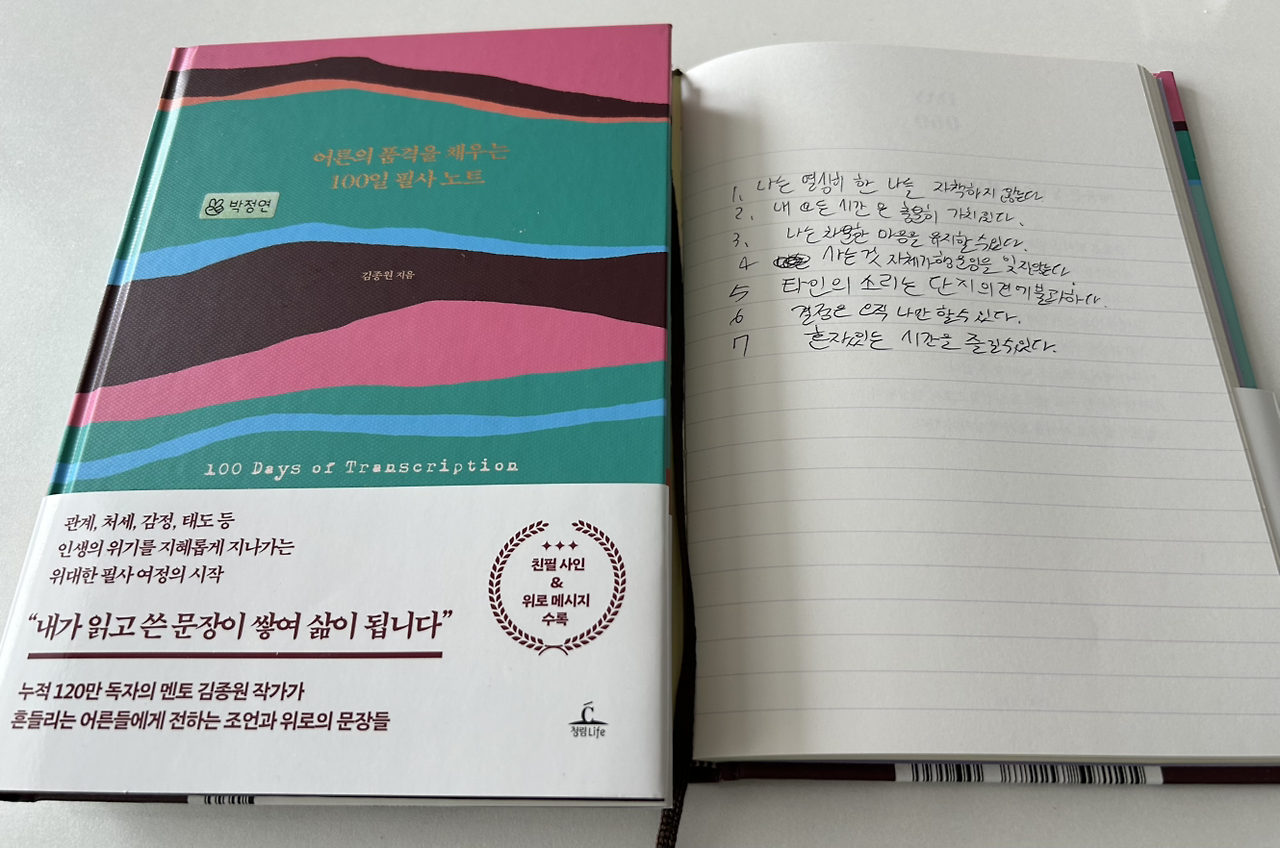 어른의 품격을 채우는
100일 필사 노트
박정연
김종원 지음
100 Days of Transcription
관계, 처세, 감정, 태도 등
인생의 위기를 지혜롭게 지나가는
위대한 필사 여정의 시작
“내가 읽고 쓴 문장이 쌓여 삶이 됩니다”
누적 120만 독자의 멘토 김종원 작가가
흔들리는 어른들에게 전하는 조언과 위로의 문장들
친필 사인
&
위로 메시지
수록
청림Life
1. 나는 열심히 한 나를 자책하지 않는다
2. 내 모든 시간은 충분히 가치있다.
3. 나는 차분한 마음을 유지할 수있다.
4 사는것 자체가 행운임을 잊지않는다.
5 타인의 소리는 단지 의견에 불과하다.
6 결정은 오직 나만 할수 있다.
7 혼자있는 시간을 즐길수있다.